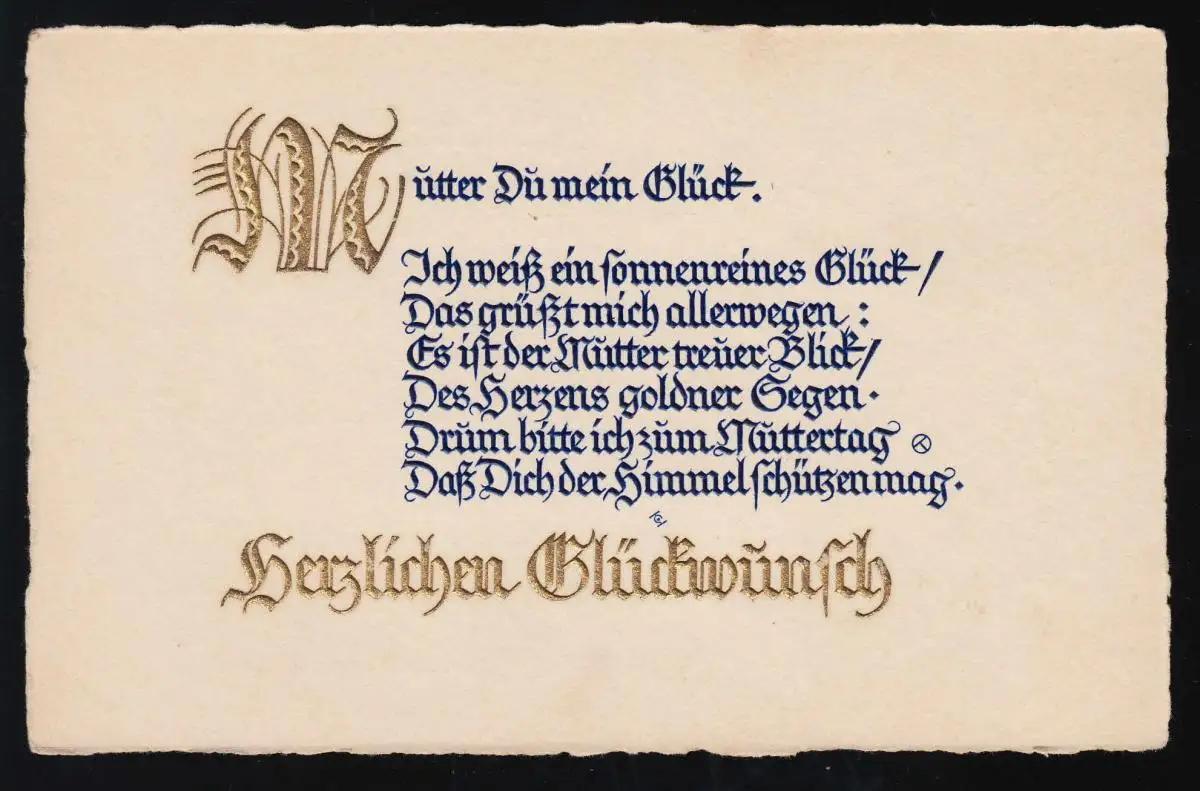 Mutter Du mein Glück.
Ich weiß ein sonnenreines Glück /
Das grüßt mich allerwegen :
Es ist der Mutter treuer Blick /
Des Herzens goldner Segen.
Drum bitte ich zum Muttertag
Daß Dich der Himmel schützen mag.
Herzlichen Glückwunsch